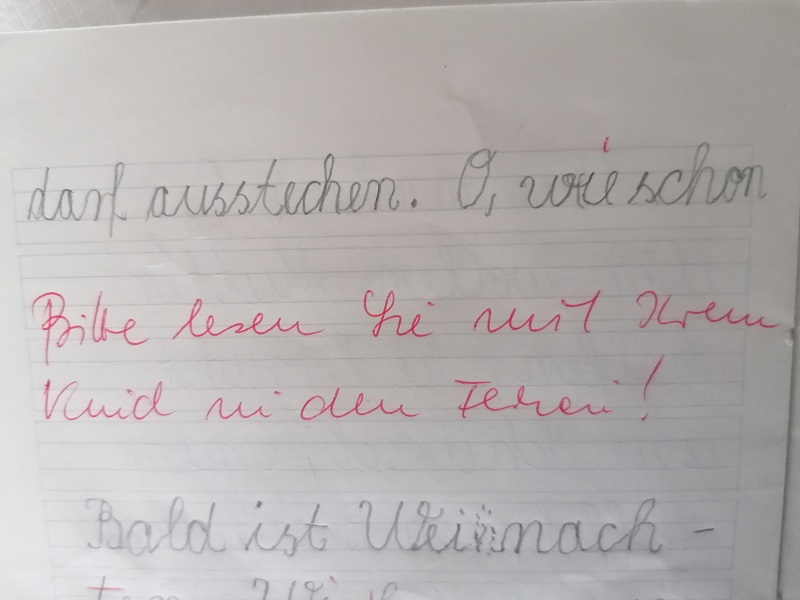 darf ausstechen. O, wie schon
Bitte lesen Sie mit Ihrem
Kind in den Ferien!
Bald ist Weihnach-